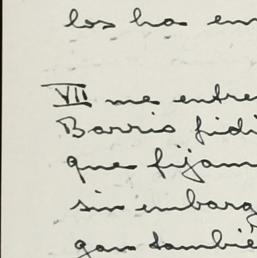 los ha en
VII me entre
Barrio fidi
que fijam
sin embarg
gan tambié